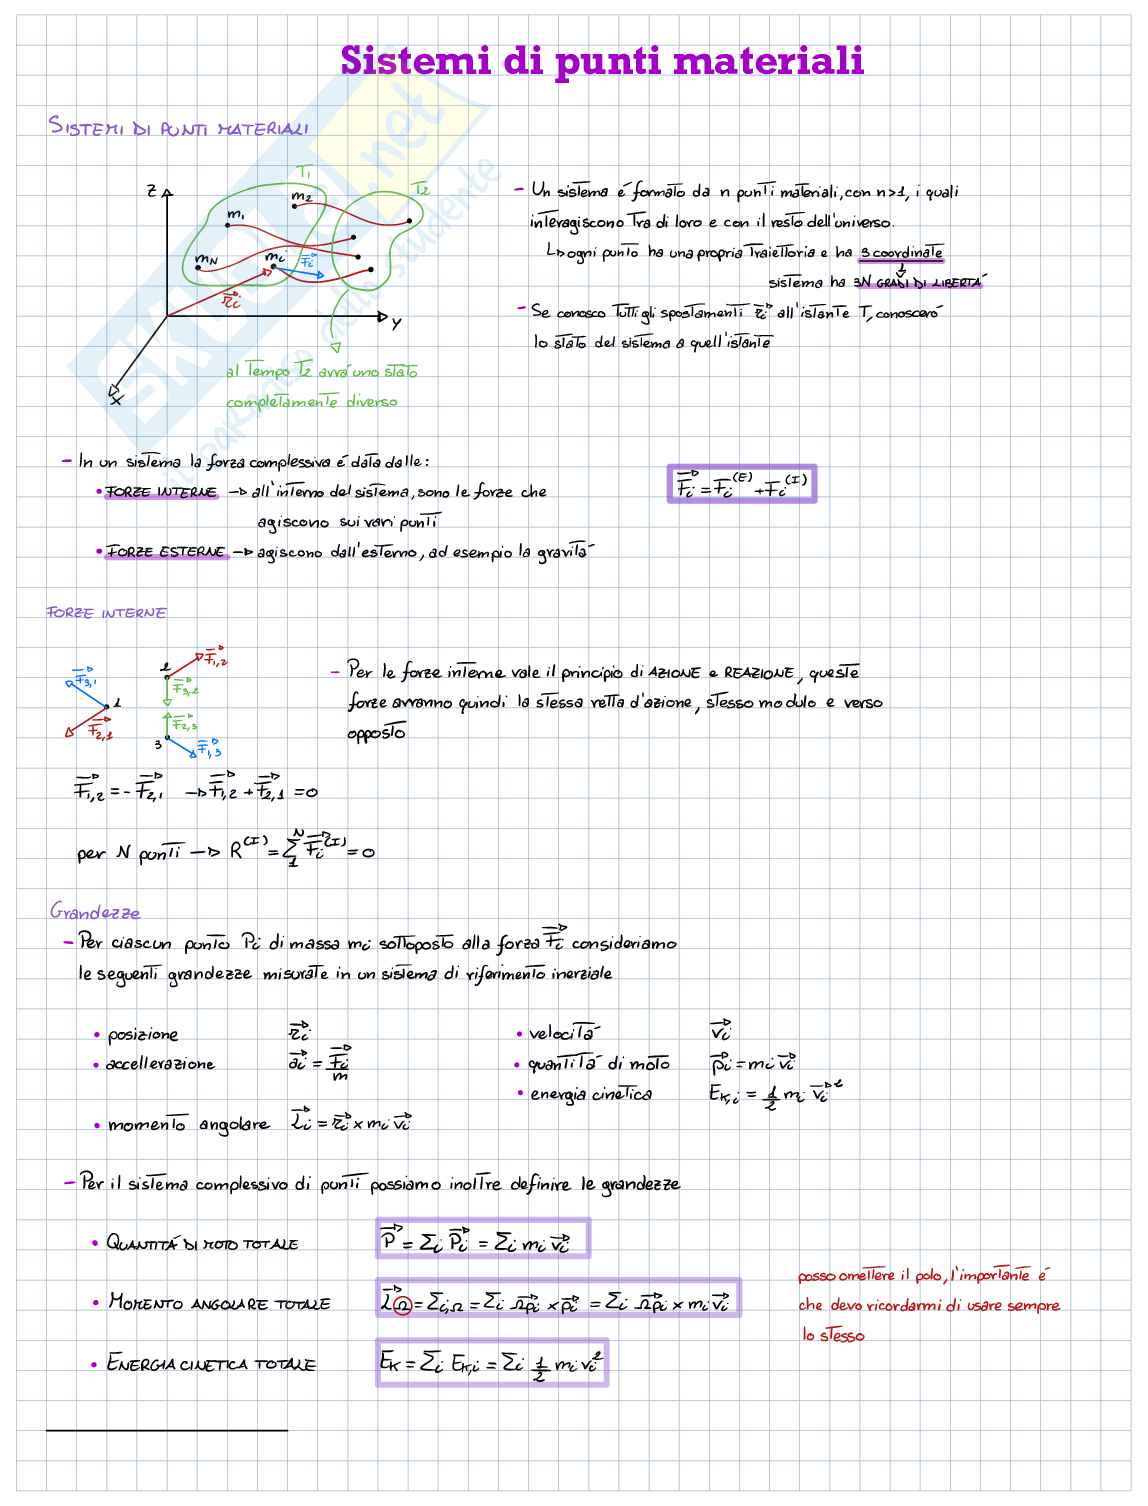 Sistemi di punti materiali
SISTEMI DI PUNTI MATERIALI
SKUOLA.net
il paradiso dello studente
Z
T1
T2
m1
m2
mN
mi
Fi
ri
Y
X
al tempo T2 avrà uno stato
completamente diverso
- Un sistema é formato da n punti materiali, con n>1, i quali
interagiscono tra di loro e con il resto dell'universo.
↳ ogni punto ha una propria traiettoria e ha 3 coordinate
↓
sistema ha 3N GRADI DI LIBERTÁ
- Se conosco tutti gli spostamenti r⃗i all'istante T, conosceró
lo stato del sistema a quell'istante
- In un sistema la forza complessiva é data dalle:
• FORZE INTERNE → all'interno del sistema, sono le forze che
agiscono sui vari punti
• FORZE ESTERNE → agiscono dall'esterno, ad esempio la gravitá
F⃗i = Fi(E) + Fi(I)
FORZE INTERNE
F⃗3,1
1
F⃗2,1
2
F⃗1,2
F⃗3,2
F⃗2,3
3
F⃗1,3
- Per le forze interne vale il principio di AZIONE e REAZIONE, queste
forze avranno quindi la stessa retta d'azione, stesso modulo e verso
opposto
F⃗1,2 = - F⃗2,1 → F⃗1,2 + F⃗2,1 = 0
per N punti → R(I) = Σ1N F⃗i(I) = 0
Grandezze
- Per ciascun punto Pi di massa mi sottoposto alla forza F⃗i consideriamo
le seguenti grandezze misurate in un sistema di riferimento inerziale
• posizione r⃗i
• velocitá v⃗i
• accellerazione a⃗i = F⃗i/m
• quantitá di moto p⃗i = mi v⃗i
• energia cinetica EK,i = 1/2 mi v⃗i²
• momento angolare L⃗i = r⃗i x mi v⃗i
- Per il sistema complessivo di punti possiamo inoltre definire le grandezze
• QUANTITÁ DI MOTO TOTALE P⃗ = Σi P⃗i = Σi mi v⃗i
• MOMENTO ANGOLARE TOTALE L⃗Ω = Σi,Ω = Σi Ωp⃗i x p⃗i = Σi Ωp⃗i x mi v⃗i
posso omettere il polo, l'importante é
che devo ricordarmi di usare sempre
lo stesso
• ENERGIA CINETICA TOTALE EK = Σi EK,i = Σi 1/2 mi vi²